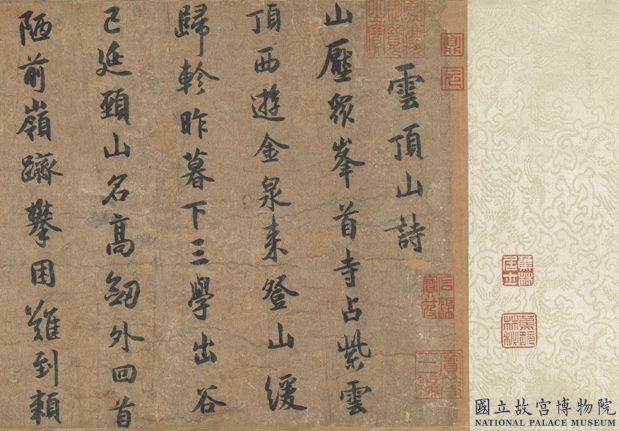 雲頂山詩
山壓眾峯首寺占紫雲
頂西遊金泉来登山緩
歸軫昨暮下三學出谷
已延頸山名高劒外回首
陋前嶺躋攀困難到頼
鼎元
蕉林居士
國立故宮博物院
NATIONAL PALACE MUSEUM